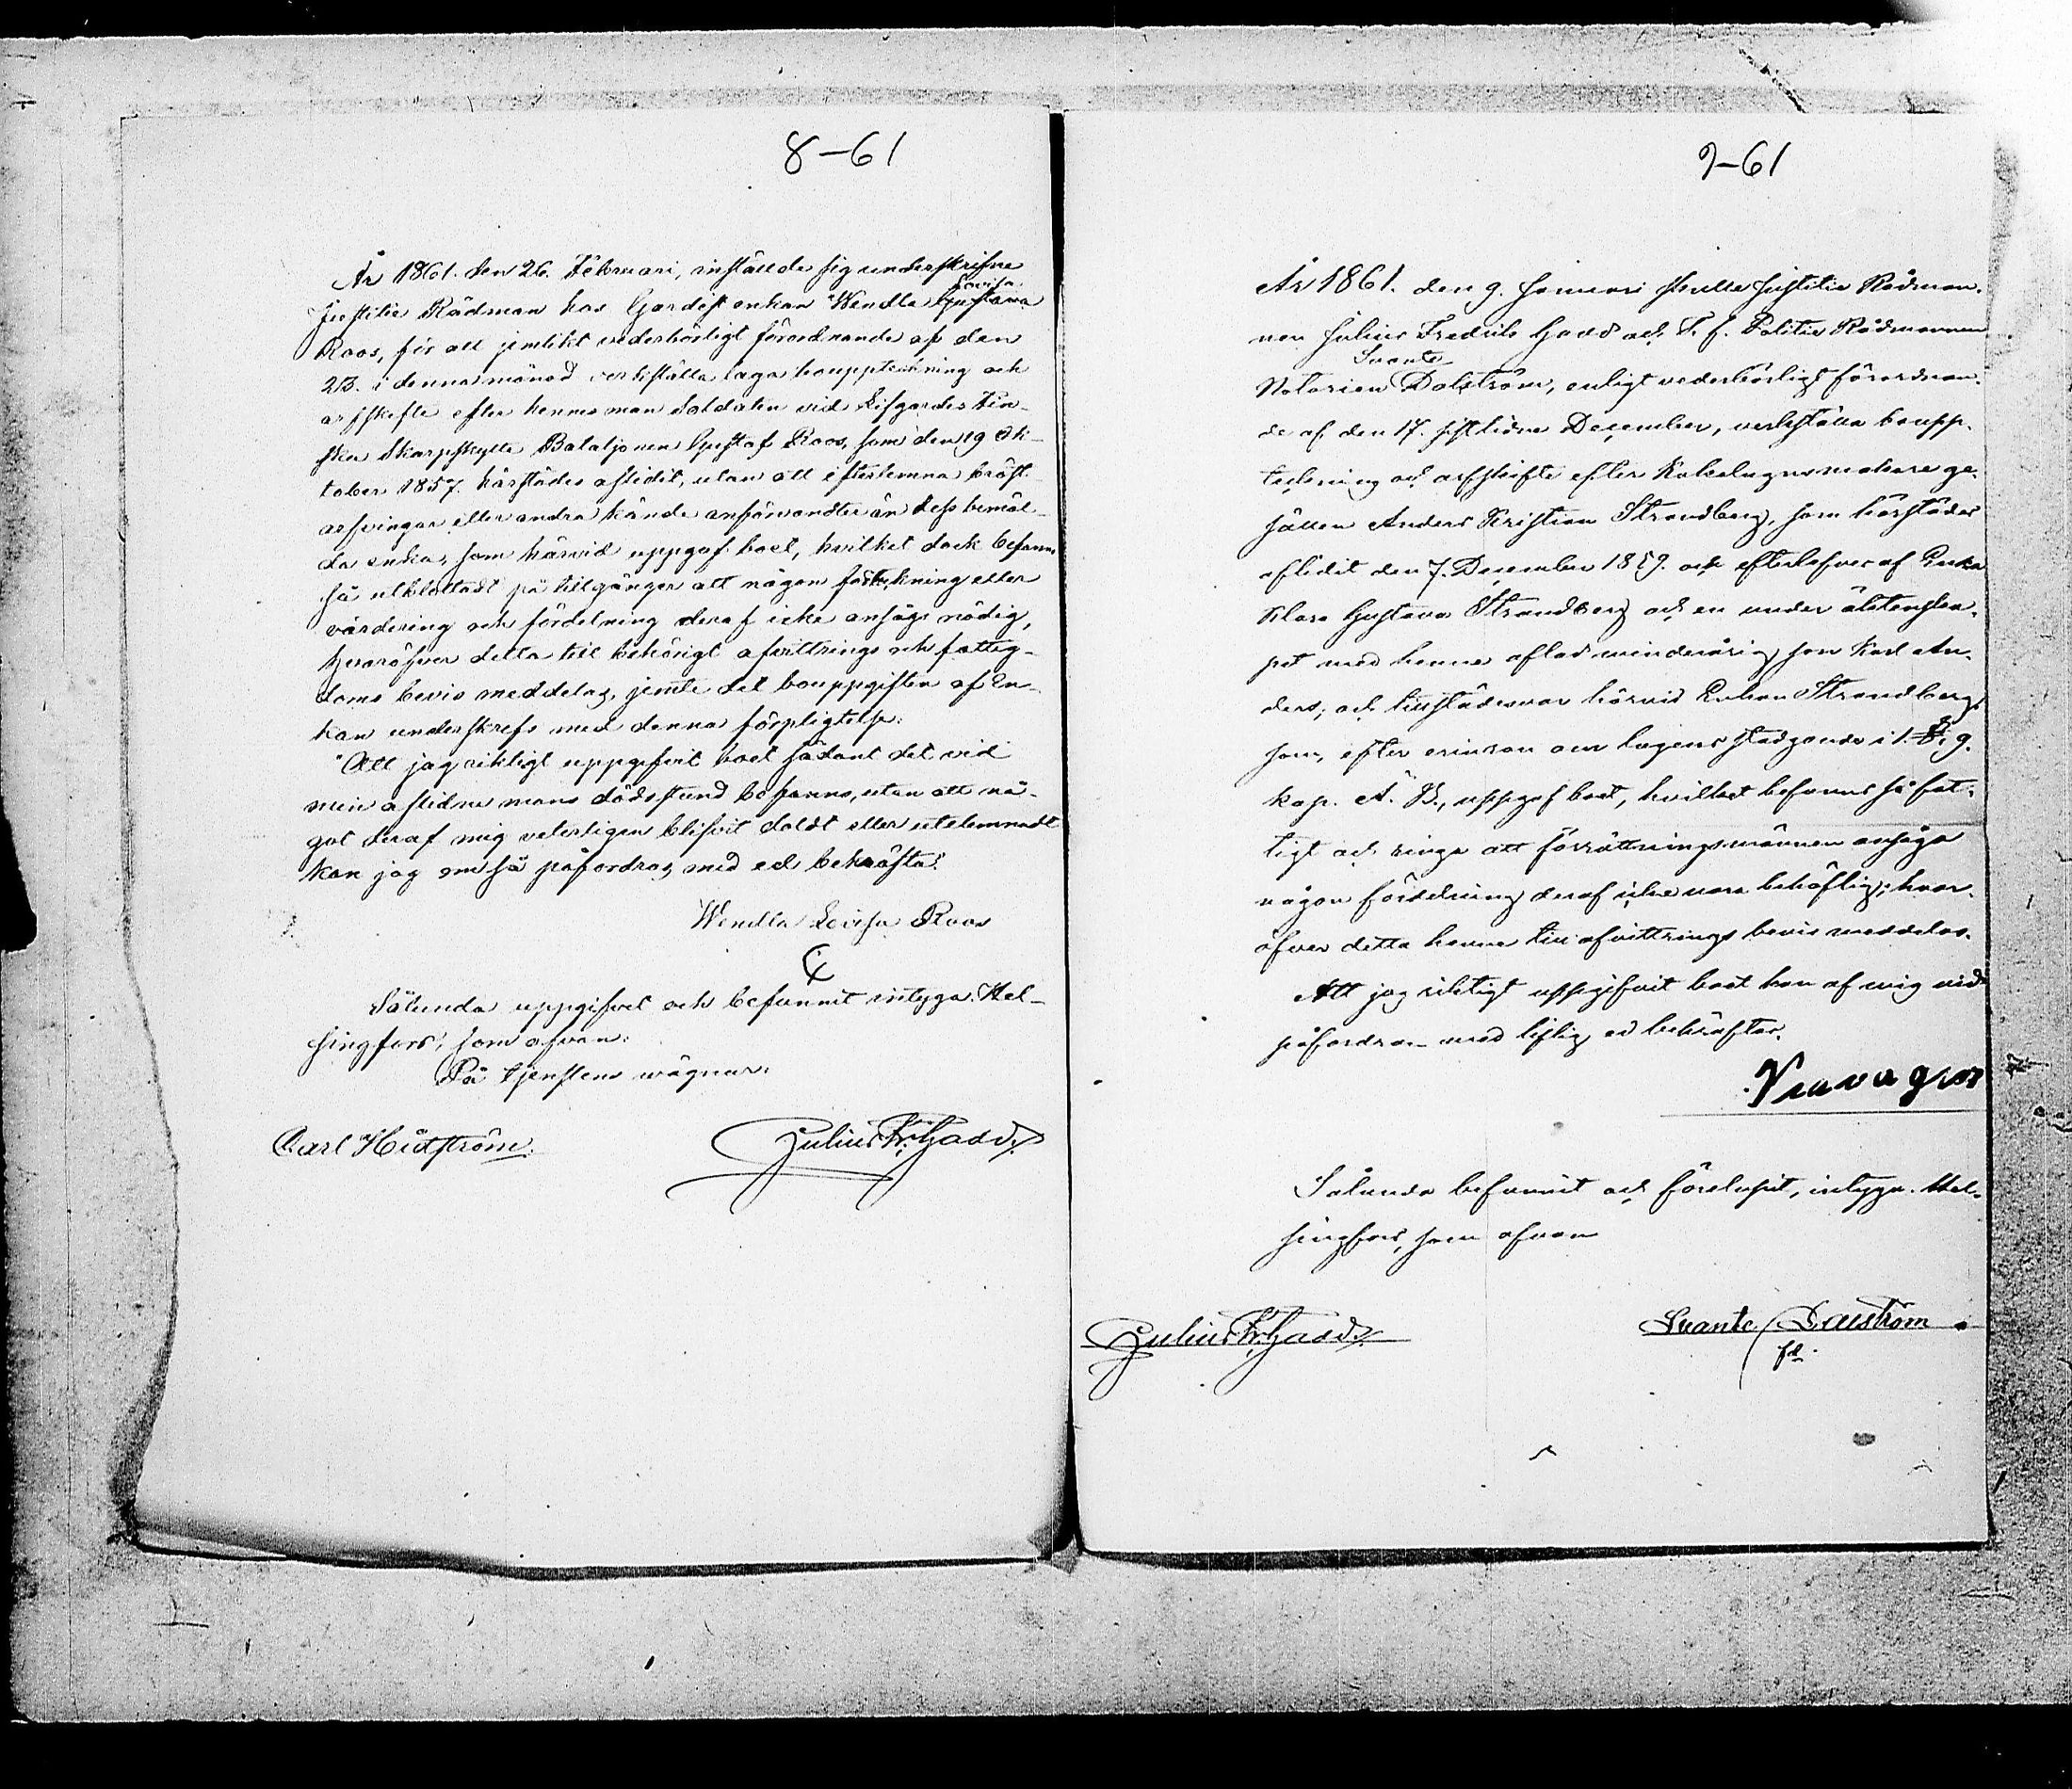 8-61
År 1861. den 26. Februari, inställde sig underskrifne
Lovisa
Justitie Rådman hos Gardist enkan Wendla Gustava
Roos, för att jemlikt vederbörligt förordnande af den
23. i denna månad verkställa laga bouppteckning och
arfskifte efter hennes man Soldaten vid Lifgardes Fin-
ska Skarpskytte Bataljonen Gustaf Roos, som den 19 Ok-
tober 1857. härstädes aflidit, utan att efterlemna bröst-
arfvingar eller andra kända anförvandter än dess bemäl-
da enka, som härvid uppgaf boet, hvilket dock befanns
så utblottadt på tillgångar att någon förteckning eller
värdering och fördelning deraf icke ansågs nödig,
hvaröfver detta till behörigt afvittrings och fattig-
doms bevis meddelas, jemte det bouppgiften af En-
kan underskrefs med denna förpligtelse:
"Att jag riktigt uppgifvit boet sådant det vid
min aflidne mans dödsstund befanns, utan att nå-
got deraf mig veterligen blifvit doldt eller utelemnadt
kan jag om så påfordras med ed bekräfta."
Wendla Lovisa Roos
Sålunda uppgifvet och befunnit intyga. Hel-
singfors, som ofvan:
På tjenstens vägnar:
Carl Hidström. Julius Fr. Gadd.
9-61
År 1861. den 9. Januari skulle Justitie Rådman-
nen Julius Fredrik Gadd och T. f. Politie Rådmannen
Svante
Notarien Dalström, enligt vederbörligt förordnan-
de af den 17. sistlidne December, verkställa boupp-
teckning och arfskifte efter Kakelugnsmakare ge-
sällen Anders Kristian Strandberg, som härstädes
aflidit den 7. December 1859. och efterlefves af Enka
Klara Gustava Strandberg och en under äktenska-
pet med henne aflad minderårig son Karl An-
ders; och tillstädesvar härvid Enkan Strandberg,
som, efter erinran om lagens stadgande i 1. §. 9.
kap. Ä. B., uppgaf boet, hvilket befanns så fat-
tigt och ringa att förrättningsmännen ansågo
någon fördelning deraf icke vara behöflig; hvar-
öfver detta henne till afvittrings bevis meddelas.
Att jag riktigt uppgifvit boet kan af mig vid
påfordran med liflig ed bekräftas.
Sålunda befunnit och förelupit, intyga. Hel-
singfors, som ofvan
Julius Fr. Gadd. Svante Dalström